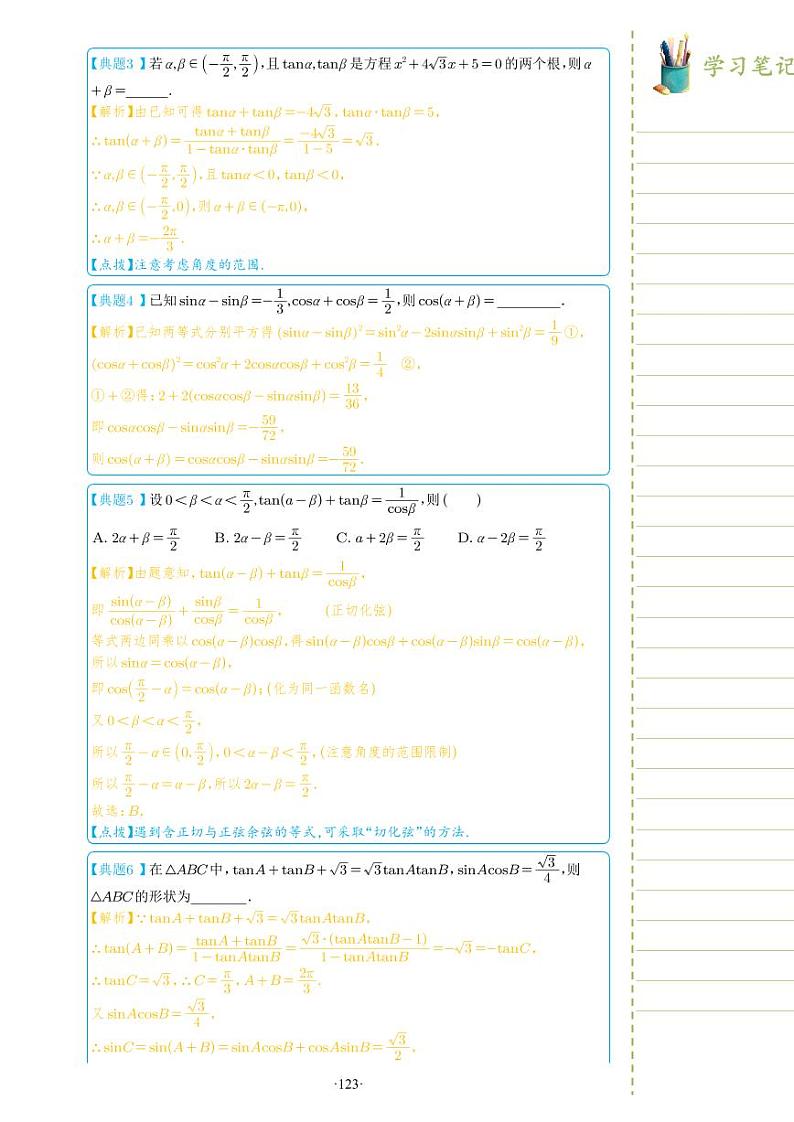 【典题3】若α,β∈(-π/2,π/2),且tanα,tanβ是方程x²+4√3x+5=0的两个根,则α
+β=______.
【解析】由已知可得tanα+tanβ=-4√3,tanα·tanβ=5,
∴tan(α+β)=(tanα+tanβ)/(1-tanα·tanβ)=(-4√3)/(1-5)=√3.
∵α,β∈(-π/2,π/2),且tanα<0,tanβ<0,
∴α,β∈(-π/2,0),则α+β∈(-π,0),
∴α+β=-2π/3.
【点拨】注意考虑角度的范围.
【典题4】已知sinα-sinβ=-1/3,cosα+cosβ=1/2,则cos(α+β)=_________.
【解析】已知两等式分别平方得(sinα-sinβ)²=sin²α-2sinαsinβ+sin²β=1/9 ①,
(cosα+cosβ)²=cos²α+2cosαcosβ+cos²β=1/4 ②,
①+②得:2+2(cosαcosβ-sinαsinβ)=13/36,
即cosαcosβ-sinαsinβ=-59/72,
则cos(α+β)=cosαcosβ-sinαsinβ=-59/72.
【典题5】设0<β<α<π/2,tan(a-β)+tanβ=1/cosβ,则( )
A. 2α+β=π/2 B. 2α-β=π/2 C. a+2β=π/2 D. α-2β=π/2
【解析】由题意知,tan(α-β)+tanβ=1/cosβ,
即sin(α-β)/cos(α-β)+sinβ/cosβ=1/cosβ, (正切化弦)
等式两边同乘以cos(α-β)cosβ,得sin(α-β)cosβ+cos(α-β)sinβ=cos(α-β),
所以sinα=cos(α-β),
即cos(π/2-α)=cos(α-β);(化为同一函数名)
又0<β<α<π/2,
所以π/2-α∈(0,π/2),0<α-β<π/2,(注意角度的范围限制)
所以π/2-α=α-β,所以2α-β=π/2.
故选:B.
【点拨】遇到含正切与正弦余弦的等式,可采取“切化弦”的方法.
【典题6】在△ABC中,tanA+tanB+√3=√3tanAtanB,sinAcosB=√3/4,则
△ABC的形状为________.
【解析】∵tanA+tanB+√3=√3tanAtanB,
∴tan(A+B)=(tanA+tanB)/(1-tanAtanB)=(√3·(tanAtanB-1))/(1-tanAtanB)=-√3=-tanC,
∴tanC=√3,∴C=π/3,A+B=2π/3.
又sinAcosB=√3/4,
∴sinC=sin(A+B)=sinAcosB+cosAsinB=√3/2,
·123·
学习笔记